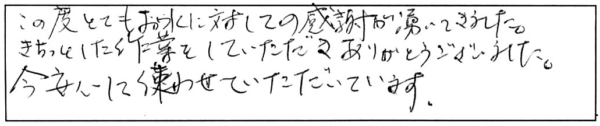 この度とてもお水に対しての感謝が湧いてきました。
きちっとしたお仕事をしていただきありがとうございました。
今安心して使わせていただいています。